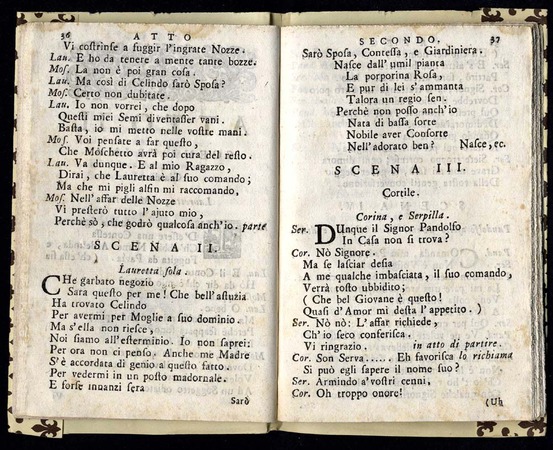 36 ATTO
Vi costrinse a fuggir l'ingrate Nozze.
Lau. E ho da tenere a mente tante bozze.
Mos. La non è poi gran cosa.
Lau. Ma così di Celindo sarò Sposa?
Mos. Certo non dubitate.
Lau. Io non vorrei, che dopo
Questi miei Semi diventasser vani.
Basta, io mi metto nelle vostre mani.
Mos. Voi pensate a far questo,
Che Moschetto avrà poi cura del resto.
Lau. Va dunque. E al mio Ragazzo,
Dirai, che Lauretta è al suo comando;
Ma che mi pigli alfin mi raccomando,
Mos. Nell'affar delle Nozze
Vi presterò tutto l'ajuto mio,
Perchè sò, che godrò qualcosa anch'io. parte
SCENA II.
Lauretta sola.
CHe garbato negozio
Sara questo per me! Che bell'astuzia
Ha trovato Celindo
Per avermi per Moglie a suo dominio.
Ma s'ella non riesce,
Noi siamo all'esterminio. Io non saprei:
Per ora non ci penso. Anche me Madre
S'è accordata di genio a questo fatto.
Per vedermi in un posto madornale.
E forse innanzi sera
Sarò
SECONDO. 37
Sarò Sposa, Contessa, e Giardiniera.
Nasce dall'umil pianta
La porporina Rosa,
E pur di lei s'ammanta
Talora un regio sen.
Perchè non posso anch'io
Nata di bassa sorte
Nobile aver Consorte
Nell'adorato ben? Nasce, ec.
SCENA III.
Cortile.
Corina, e Serpilla.
Ser. DUnque il Signor Pandolfo
In Casa non si trova?
Cor. Nò Signore.
Ma se lasciar desia
A me qualche imbasciata, il suo comando,
Verrà tosto ubbidito;
( Che bel Giovane è questo!
Quasi d'Amor mi desta l'appetito. )
Ser. Nò nò: L'affar richiede,
Ch'io seco conferisca.
Vi ringrazio. in atto di partire.
Cor. Son Serva...... Eh favorisca lo richiama
Si può egli sapere il nome suo?
Ser. Armindo a'vostri cenni,
Cor. Oh troppo onore!
(Uh